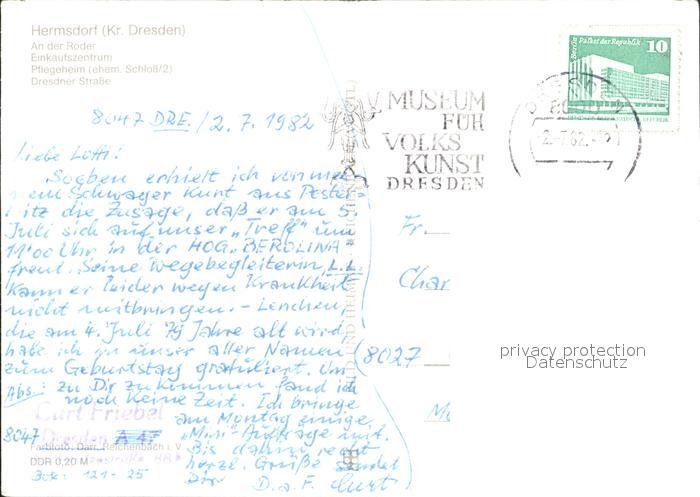 Hermsdorf (Kr. Dresden)
An der Röder
Einkaufszentrum
Pflegeheim (ehem. Schloß/2)
Dresdner Straße
Berlin Palast der Republik 10
MUSEUM
FÜR
VOLKS
KUNST
DRESDEN
8047 DRE. / 2. 7. 1982
Liebe Lotti!
Soeben erhielt ich von mei-
nem Schwager Kurt aus Pester-
witz die Zusage, daß er am 5.
Juli sich auf unser "Treff" um
11.00 Uhr in der HOG. "BEROLINA"
freut. Seine Wegebegleiterin, L.L.
kann er leider wegen Krankheit
nicht mitbringen. - Lenchen,
die am 4. Juli 79 Jahre alt wird
habe ich in unser aller Namen
zum Geburtstag gratuliert. Um
zu Dir zu kommen fand ich
noch keine Zeit. Ich bringe
am Montag einige
"Mini"-Aufträge mit.
Bis dahin recht
herzl. Grüße sendet
Dir D. a. F. Curt
Fr.
Char
8027
Abs:
Curt Friebel
8047
Dresden A 47
Farbfoto: Darr, Reichenbach i. V.
DDR 0,20 M
121-25
privacy protection
Datenschutz